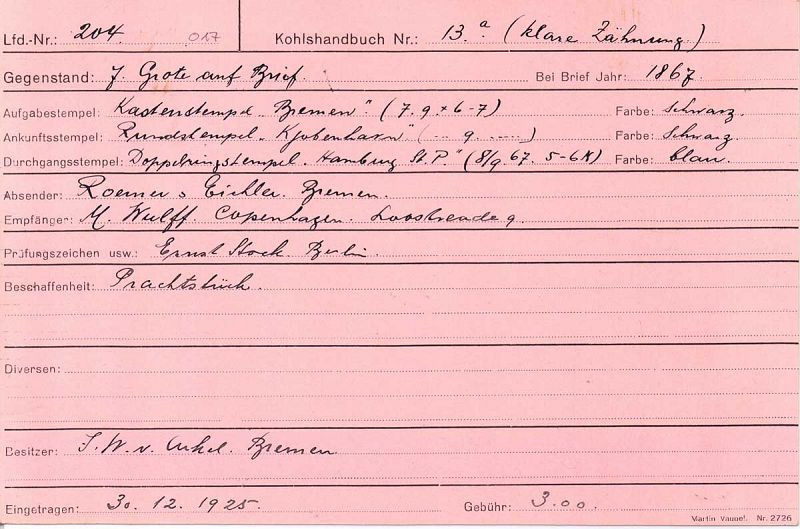 Lfd.-Nr.: 204. 017 Kohlshandbuch Nr.: 13.a. (klare Zähnung)
Gegenstand: 7. Grote auf Brief. Bei Brief Jahr: 1867.
Aufgabestempel: Kastenstempel „Bremen“ (7. 9. * 6-7) Farbe: Schwarz.
Ankunftsstempel: Rundstempel „Kjobenhavn“ (--- 9. ----) Farbe: Schwarz.
Durchgangsstempel: Doppelringstempel. Hamburg St. P." (8/9 67. 5-6 N) Farbe: blau.
Absender: Roemer & Eichler. Bremen.
Empfänger: M. Wulff Copenhagen. 9.
Prüfungszeichen usw.: Ernst Stock. Berlin.
Beschaffenheit: Prachtstück.
Diversen:
Besitzer: J. W. v. Bremen
Eingetragen: 30. 12. 1925. Gebühr: 3.00.
Martin Vaupel. Nr. 2726